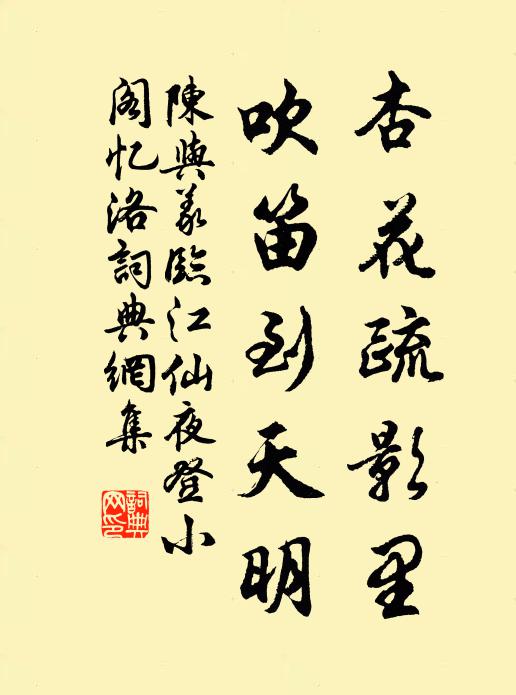 杏花疏影里
吹笛到天明
陳與义臨江仙夜登小
阁忆洛詞典網集
詞典网印